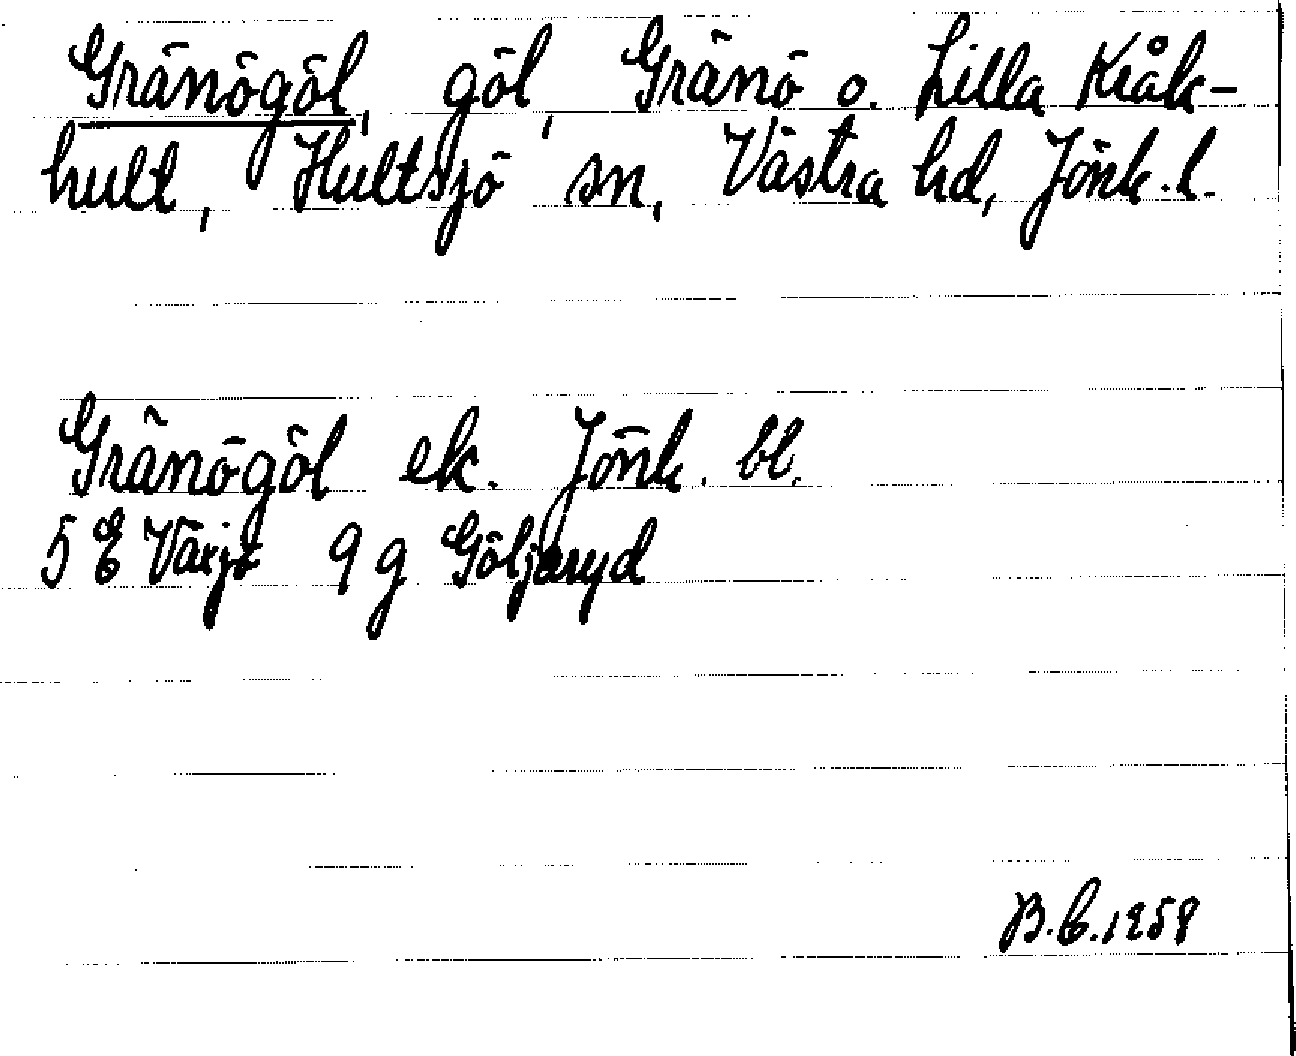 Gränögöl, göl, Gränö o. Lilla Kråk-
hult, Hultsjö sn, Västra hd, Jönk. l.
Gränögöl ek. Jönk. bl.
5 E Växjö 9 g Göljaryd
B.E. 1958